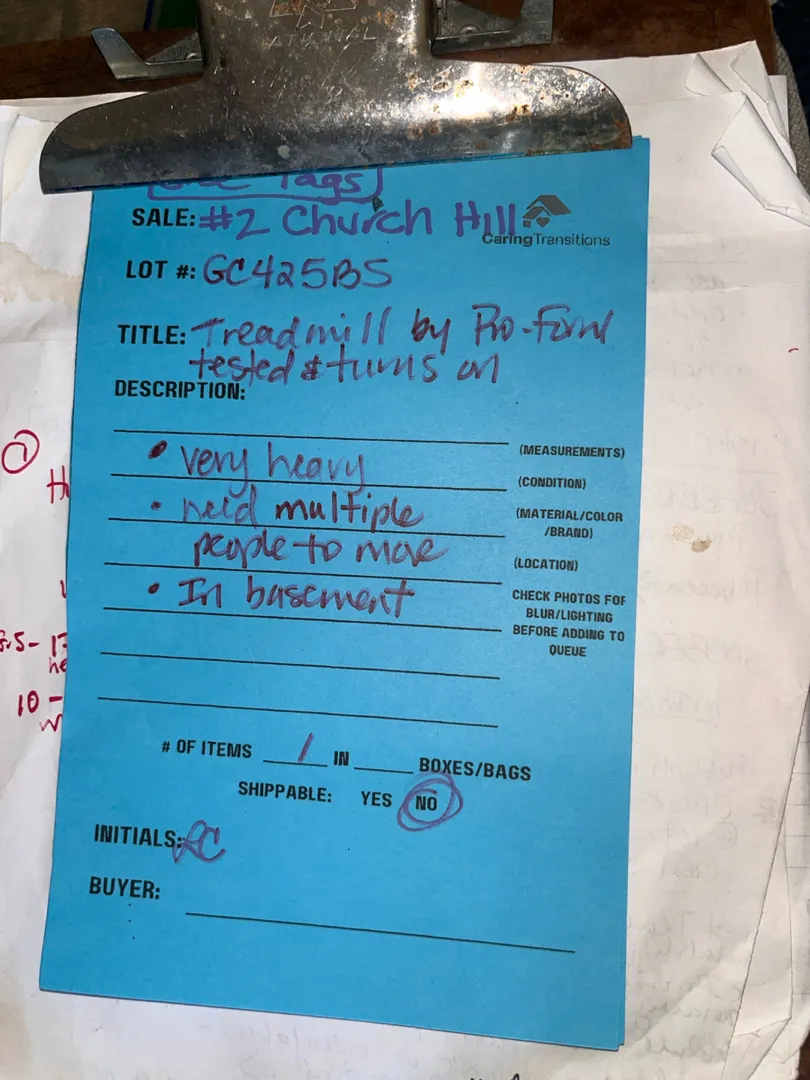 Tags
SALE: #2 Church Hill
CaringTransitions
LOT #: GC425BS
TITLE: Treadmill by Pro-Form
tested & turns on
DESCRIPTION:
(MEASUREMENTS)
• very heavy
(CONDITION)
• need multiple
(MATERIAL/COLOR
/BRAND)
people to move
(LOCATION)
• In basement
CHECK PHOTOS FOR
BLUR/LIGHTING
BEFORE ADDING TO
QUEUE
# OF ITEMS 1 IN BOXES/BAGS
SHIPPABLE: YES NO
INITIALS: LC
BUYER:
10 -